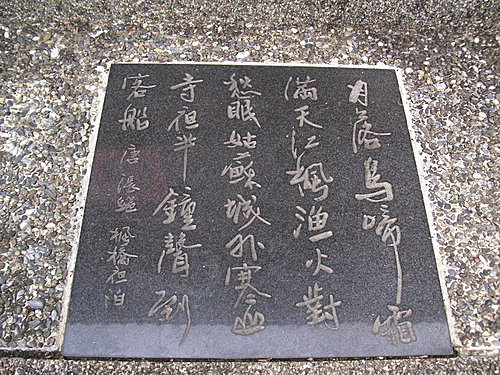 月落烏啼霜
滿天江楓漁火對
愁眠姑蘇城外寒山
寺夜半鐘聲到
客船 唐 張繼 楓橋夜泊